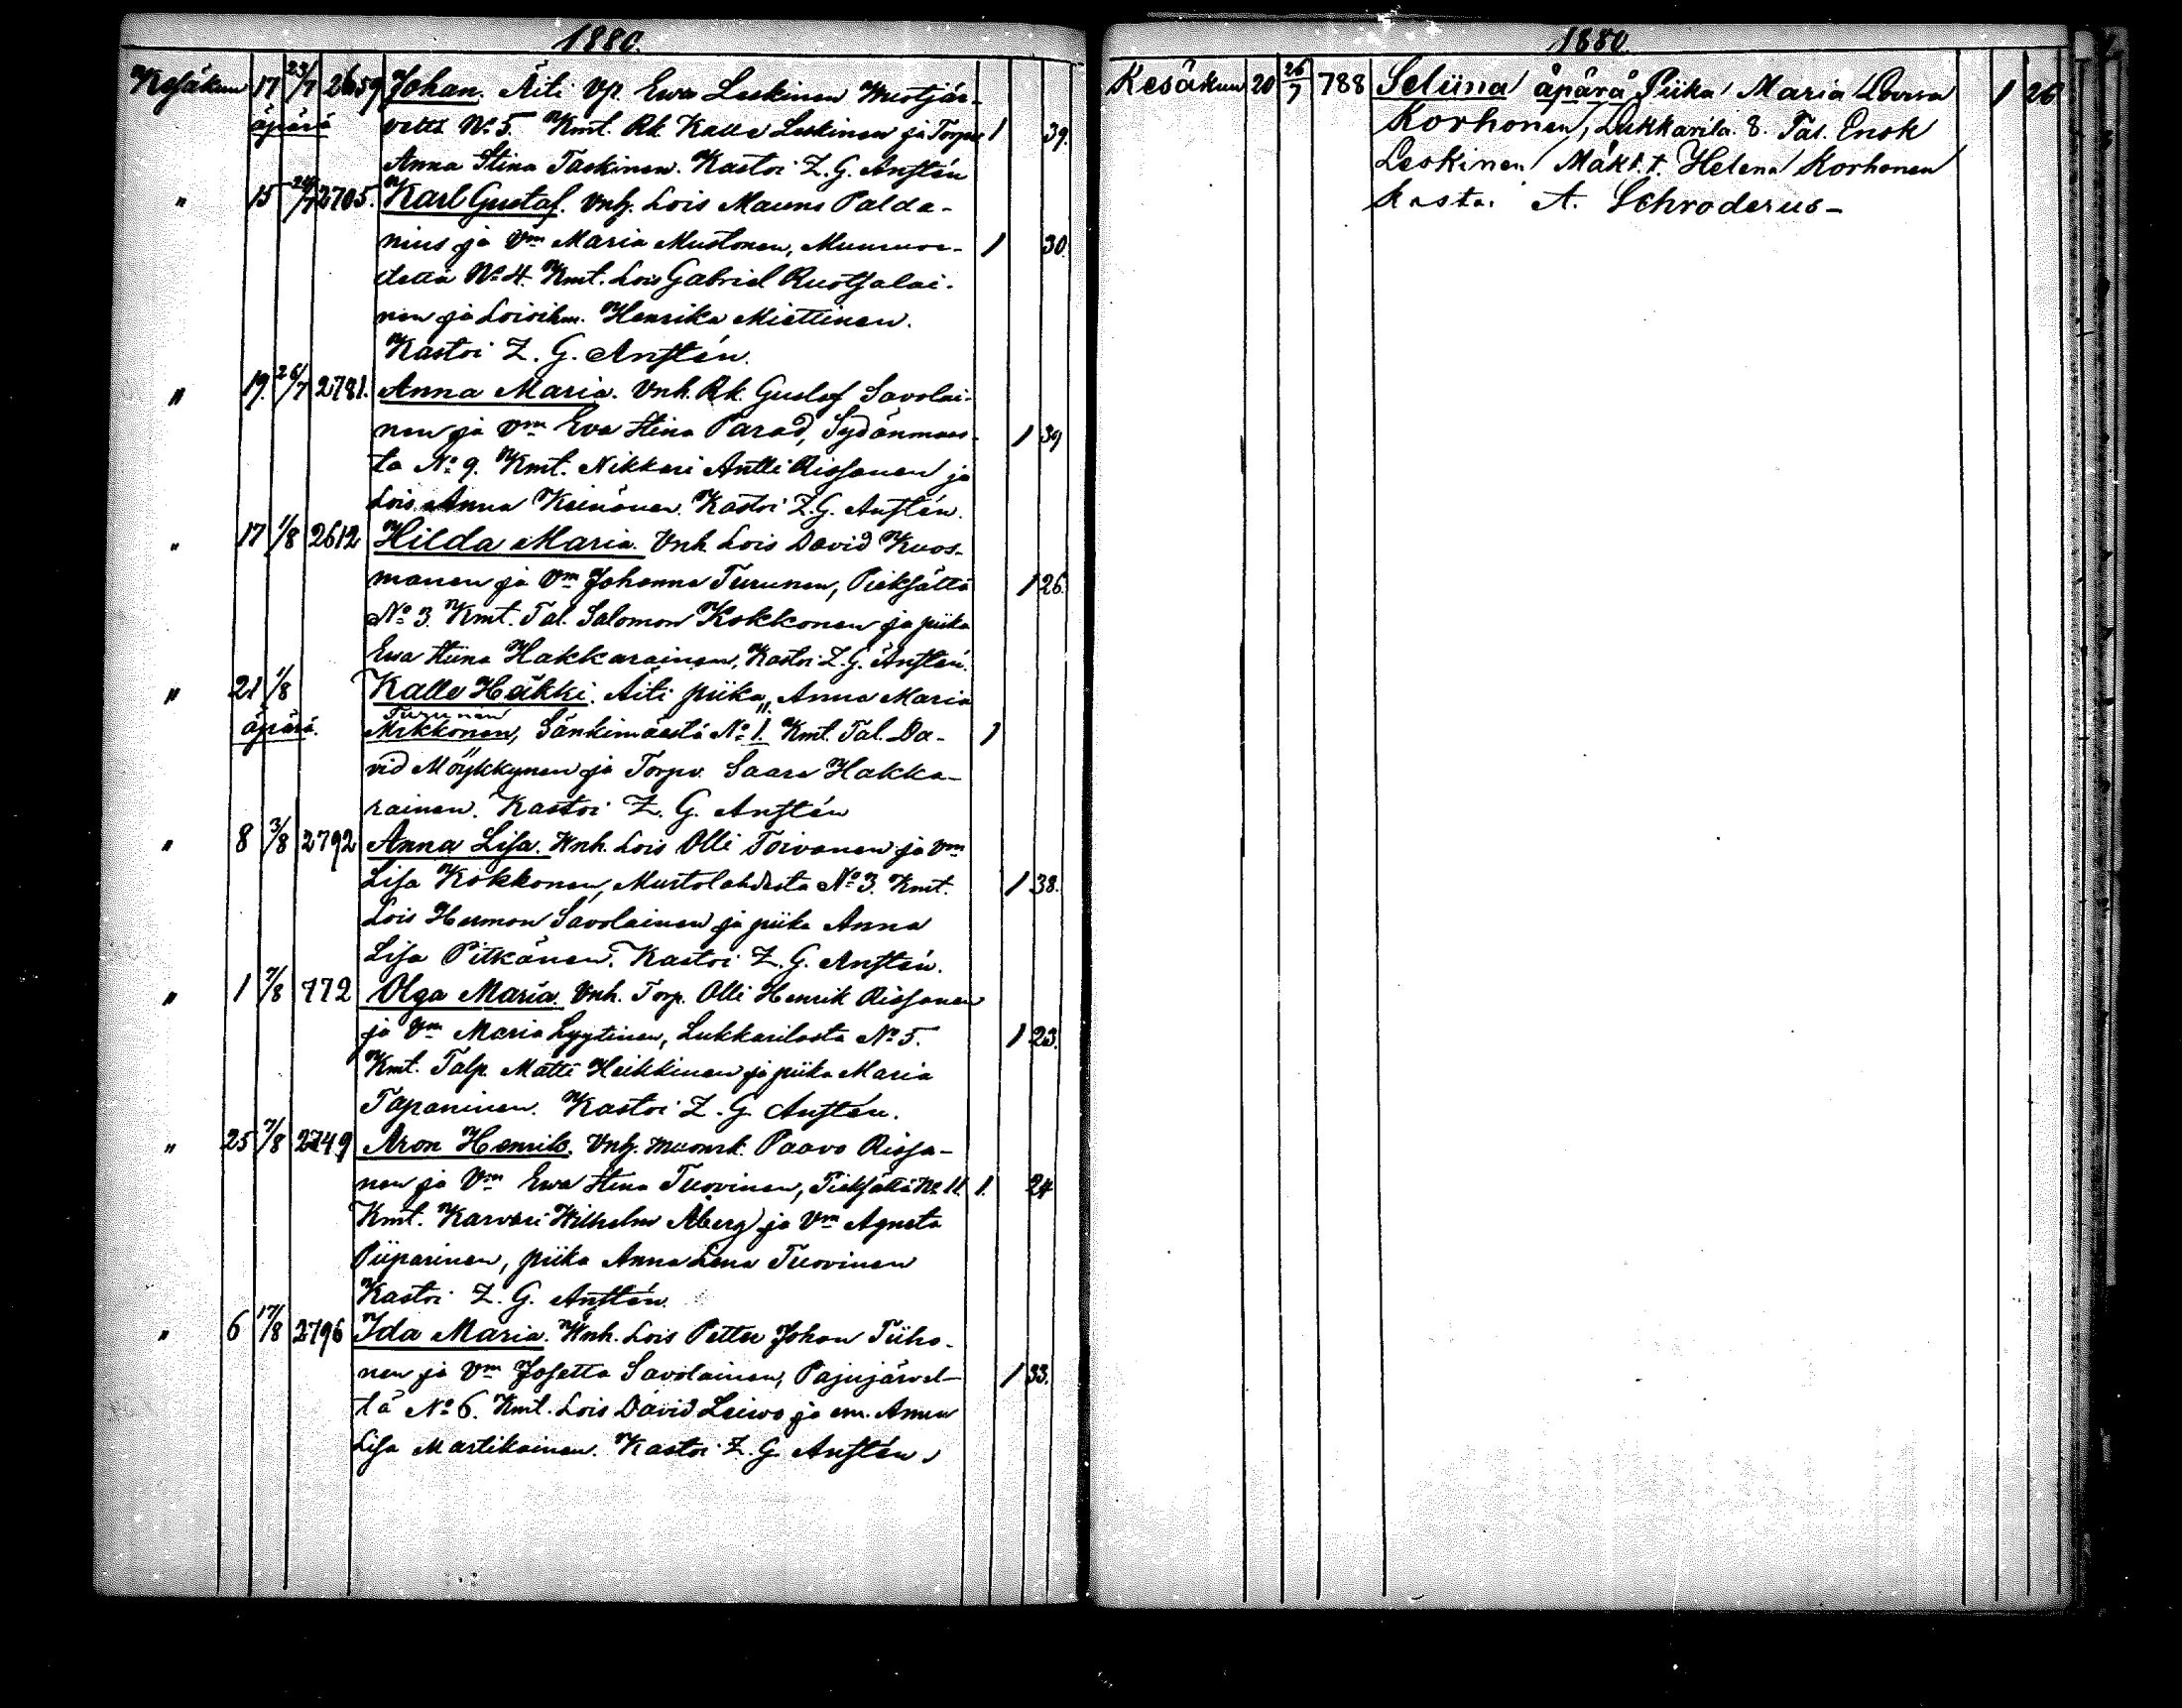 1880.
Kesäkuu 17 23/7 2659 Johan. Äiti Vp. Ewa Leskinen Kuotjär-
äpärä veltä No 5. Kmt. Rk. Kalle Leskinen ja Torpv. 1 39.
Anna Stina Taskinen. Kastoi Z. G. Anstén
" 15 24/7 2705. Karl Gustaf. Vnh. Lois Mauns Palda-
nius ja Vm Maria Mustonen, Muuruve-
deltä No 4. Kmt. Lois Gabriel Ruotsalai- 1 30.
nen ja Loisihm. Henrika Miettinen.
Kastoi Z. G. Anstén.
" 19. 26/7 2781. Anna Maria. Vnh. Rk. Gustaf Savolai-
nen ja Vm Eva Stina Parad, Sydänmaas- 1 39
ta No 9. Kmt. Nikkari Antti Rissanen ja
Lois. Anna Keinänen. Kastoi Z. G. Anstén.
" 17 1/8 2612 Hilda Maria. Vnh. Lois David Kuos-
manen ja Vm Johanna Turunen, Pieksältä 1 26.
No 3. Kmt. Tal. Salomon Kokkonen ja piika
Ewa Stina Hakkarainen. Kastoi Z. G. Anstén.
" 21 1/8 Kalle Häkki. Äiti piika Anna Maria
Turunen
äpärä. Mikkonen, Sänkimäestä No 1. Kmt. Tal. Da- 1
vid Möykkynen ja Torpv. Saara Hakka-
rainen. Kastoi Z. G. Anstén
" 8 3/8 2792 Anna Lisa. Vnh. Lois Olli Toivanen ja Vm
Lisa Kokkonen, Mustolahdesta No 3. Kmt. 1 38.
Lois Hermon Savolainen ja piika Anna
Lisa Pitkänen. Kastoi Z. G. Anstén.
" 1 7/8 772 Olga Maria. Vnh. Torp. Olli Henrik Rissanen
ja Vm Maria Lyytinen, Lukkarilasta No 5. 1 23.
Kmt. Talp. Matti Heikkinen ja piika Maria
Tapaninen. Kastoi Z. G. Anstén.
" 25 7/8 2749 Aron Henrik. Vnh. Paavo Rissa-
nen ja Vm Ewa Stina Tuovinen, No 11. 1. 24
Kmt. Karvari Wilhelm Åberg ja Vm Agneta
Piiparinen, piika Anna Lena Tuovinen
Kastoi Z. G. Anstén.
" 6 17/8 2796 Ida Maria. Vnh. Lois Petter Johan Tiiho-
nen ja Vm Josetta Savolainen, Pajujärvel- 1 33.
tä No 6. Kmt. Lois David Leivo ja em. Anna
Lisa Martikainen. Kastoi Z. G. Anstén.
1880.
Kesäkuu 20 26/7 788 Seliina äpärä Piika Maria Lovisa 1 26
Korhonen, Lukkarila. 8. Tal. Enok
Leskinen Mäkt. t. Helena Korhonen
Kastoi A. Schroderus-